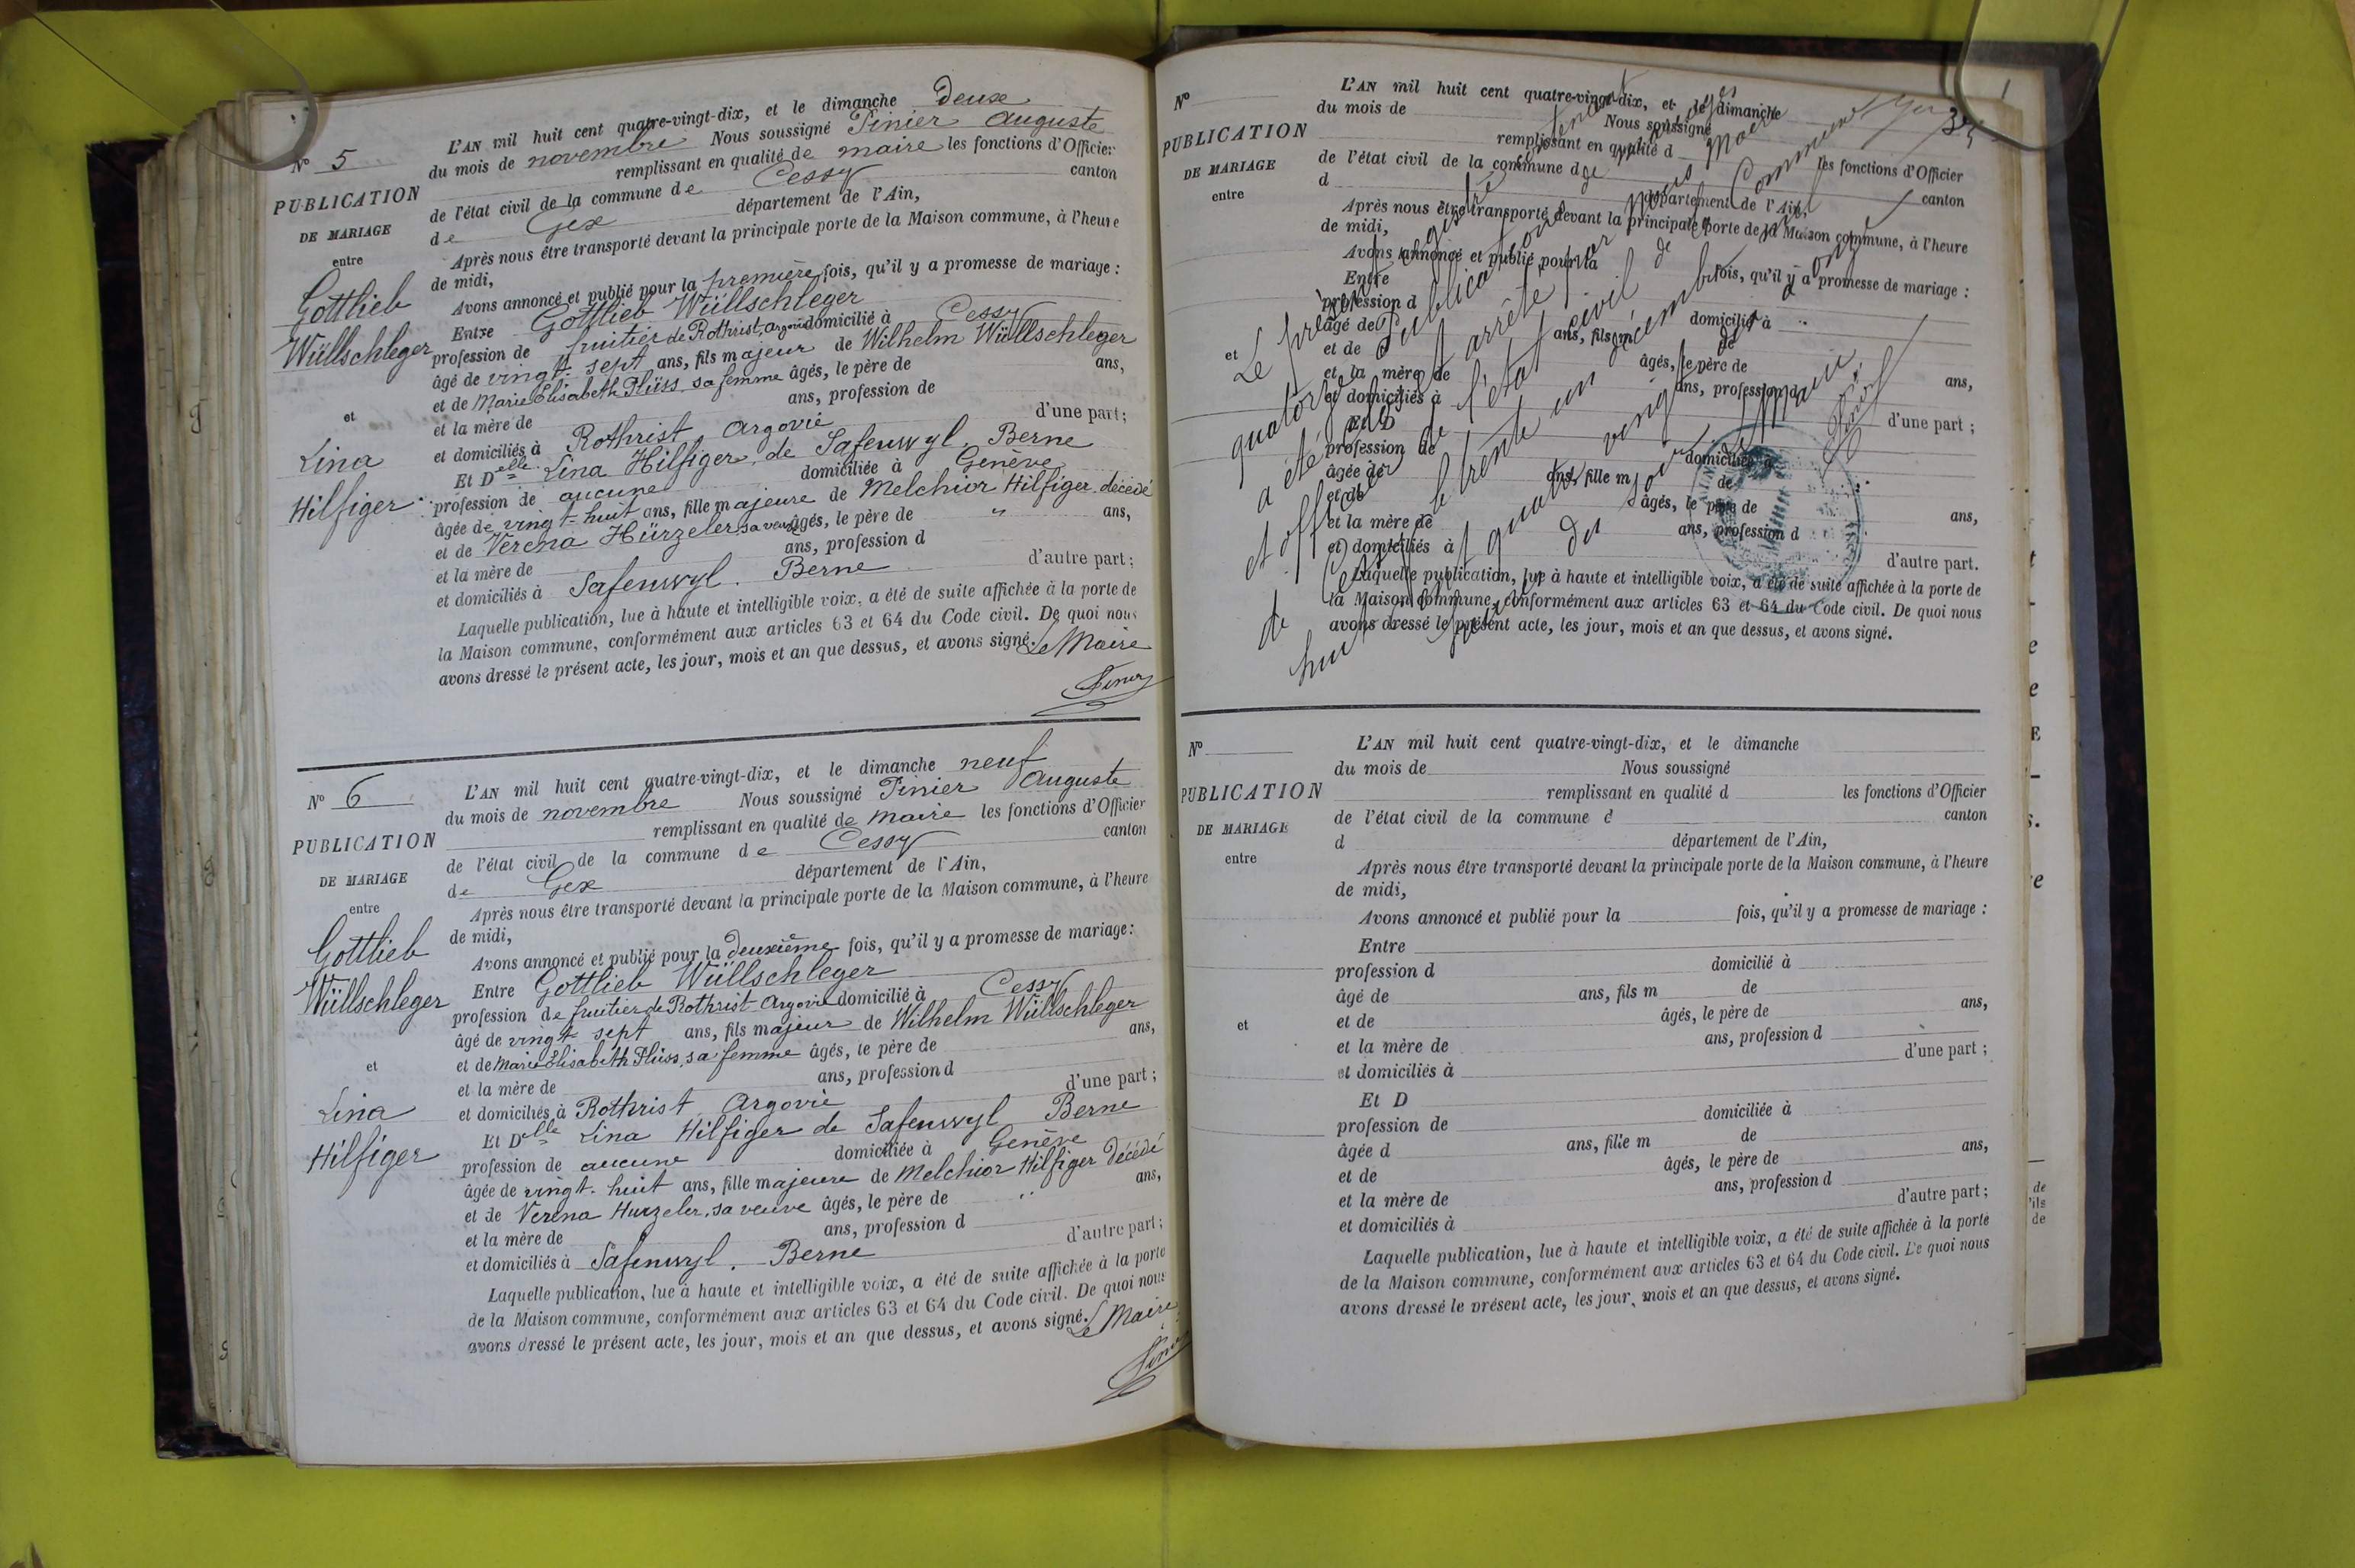 N° 5
PUBLICATION
DE MARIAGE
entre
Gottlieb
Wüllschleger
et
Lina
Hilfiger
L'AN mil huit cent quatre-vingt-dix, et le dimanche Deux
du mois de novembre Nous soussigné Pinier Auguste
remplissant en qualité de maire les fonctions d'Officier
de l'état civil de la commune de Cessy canton
de Gex département de l'Ain,
Après nous être transporté devant la principale porte de la Maison commune, à l'heure
de midi,
Avons annoncé et publié pour la première fois, qu'il y a promesse de mariage :
Entre Gottlieb Wüllschleger
profession de fruitier de Rothrist, Argovie domicilié à Cessy
âgé de vingt-sept ans, fils majeur de Wilhelm Wüllschleger
et de Marie Elisabeth Plüss, sa femme âgés, le père de ans,
et la mère de ans, profession de
et domiciliés à Rothrist Argovie d'une part;
Et Delle Lina Hilfiger, de Safenwyl, Berne
profession de aucune domiciliée à Genève
âgée de vingt-huit ans, fille majeure de Melchior Hilfiger, décédé
et de Verena Hürzeler, sa veuve âgés, le père de " ans,
et la mère de ans, profession d
et domiciliés à Safenwyl. Berne d'autre part;
Laquelle publication, lue à haute et intelligible voix, a été de suite affichée à la porte de
la Maison commune, conformément aux articles 63 et 64 du Code civil. De quoi nous
avons dressé le présent acte, les jour, mois et an que dessus, et avons signé. Le Maire
Pinier
N° 6
PUBLICATION
DE MARIAGE
entre
Gottlieb
Wüllschleger
et
Lina
Hilfiger
L'AN mil huit cent quatre-vingt-dix, et le dimanche neuf
du mois de novembre Nous soussigné Pinier Auguste
remplissant en qualité de maire les fonctions d'Officier
de l'état civil de la commune de Cessy canton
de Gex département de l'Ain,
Après nous être transporté devant la principale porte de la Maison commune, à l'heure
de midi,
Avons annoncé et publié pour la deuxième fois, qu'il y a promesse de mariage:
Entre Gottlieb Wüllschleger
profession de fruitier de Rothrist Argovie domicilié à Cessy
âgé de vingt-sept ans, fils majeur de Wilhelm Wüllschleger
et de Marie Elisabeth Plüss, sa femme âgés, le père de ans,
et la mère de ans, profession d
et domiciliés à Rothrist Argovie d'une part;
Et Delle Lina Hilfiger de Safenwyl Berne
profession de aucune domiciliée à Genève
âgée de vingt-huit ans, fille majeure de Melchior Hilfiger décédé
et de Verena Hurzeler, sa veuve âgés, le père de " ans,
et la mère de ans, profession d
et domiciliés à Safenwyl. Berne d'autre part;
Laquelle publication, lue à haute et intelligible voix, a été de suite affichée à la porte
de la Maison commune, conformément aux articles 63 et 64 du Code civil. De quoi nous
avons dressé le présent acte, les jour, mois et an que dessus, et avons signé. Le Maire
Pinier
N°
PUBLICATION
DE MARIAGE
entre
et
L'AN mil huit cent quatre-vingt-dix, et le dimanche
du mois de Nous soussigné
remplissant en qualité d les fonctions d'Officier
de l'état civil de la commune d canton
d département de l'Ain,
Après nous être transporté devant la principale porte de la Maison commune, à l'heure
de midi,
Avons annoncé et publié pour la fois, qu'il y a promesse de mariage :
Entre
profession d domicilié à
âgé de ans, fils m de
et de âgés, le père de ans,
et la mère de ans, profession d
et domiciliés à d'une part ;
Et D
profession de domiciliée à
âgée de ans, fille m de
et de âgés, le père de ans,
et la mère de ans, profession d
et domiciliés à d'autre part.
Laquelle publication, lue à haute et intelligible voix, a été de suite affichée à la porte de
la Maison commune, conformément aux articles 63 et 64 du Code civil. De quoi nous
avons dressé le présent acte, les jour, mois et an que dessus, et avons signé.
Le présent registre contenant
quatorze publications de mariages
a été clos et arrêté par nous Maire
et officier de l'état civil de la Commune
de Cessy le trente un décembre mil
huit cent quatre vingt dix
du soir
Le Maire
Pinier
N°
PUBLICATION
DE MARIAGE
entre
et
L'AN mil huit cent quatre-vingt-dix, et le dimanche
du mois de Nous soussigné
remplissant en qualité d les fonctions d'Officier
de l'état civil de la commune d canton
d département de l'Ain,
Après nous être transporté devant la principale porte de la Maison commune, à l'heure
de midi,
Avons annoncé et publié pour la fois, qu'il y a promesse de mariage :
Entre
profession d domicilié à
âgé de ans, fils m de
et de âgés, le père de ans,
et la mère de ans, profession d
et domiciliés à d'une part ;
Et D
profession de domiciliée à
âgée d ans, fille m de
et de âgés, le père de ans,
et la mère de ans, profession d
et domiciliés à d'autre part ;
Laquelle publication, lue à haute et intelligible voix, a été de suite affichée à la porte
de la Maison commune, conformément aux articles 63 et 64 du Code civil. De quoi nous
avons dressé le présent acte, les jour, mois et an que dessus, et avons signé.